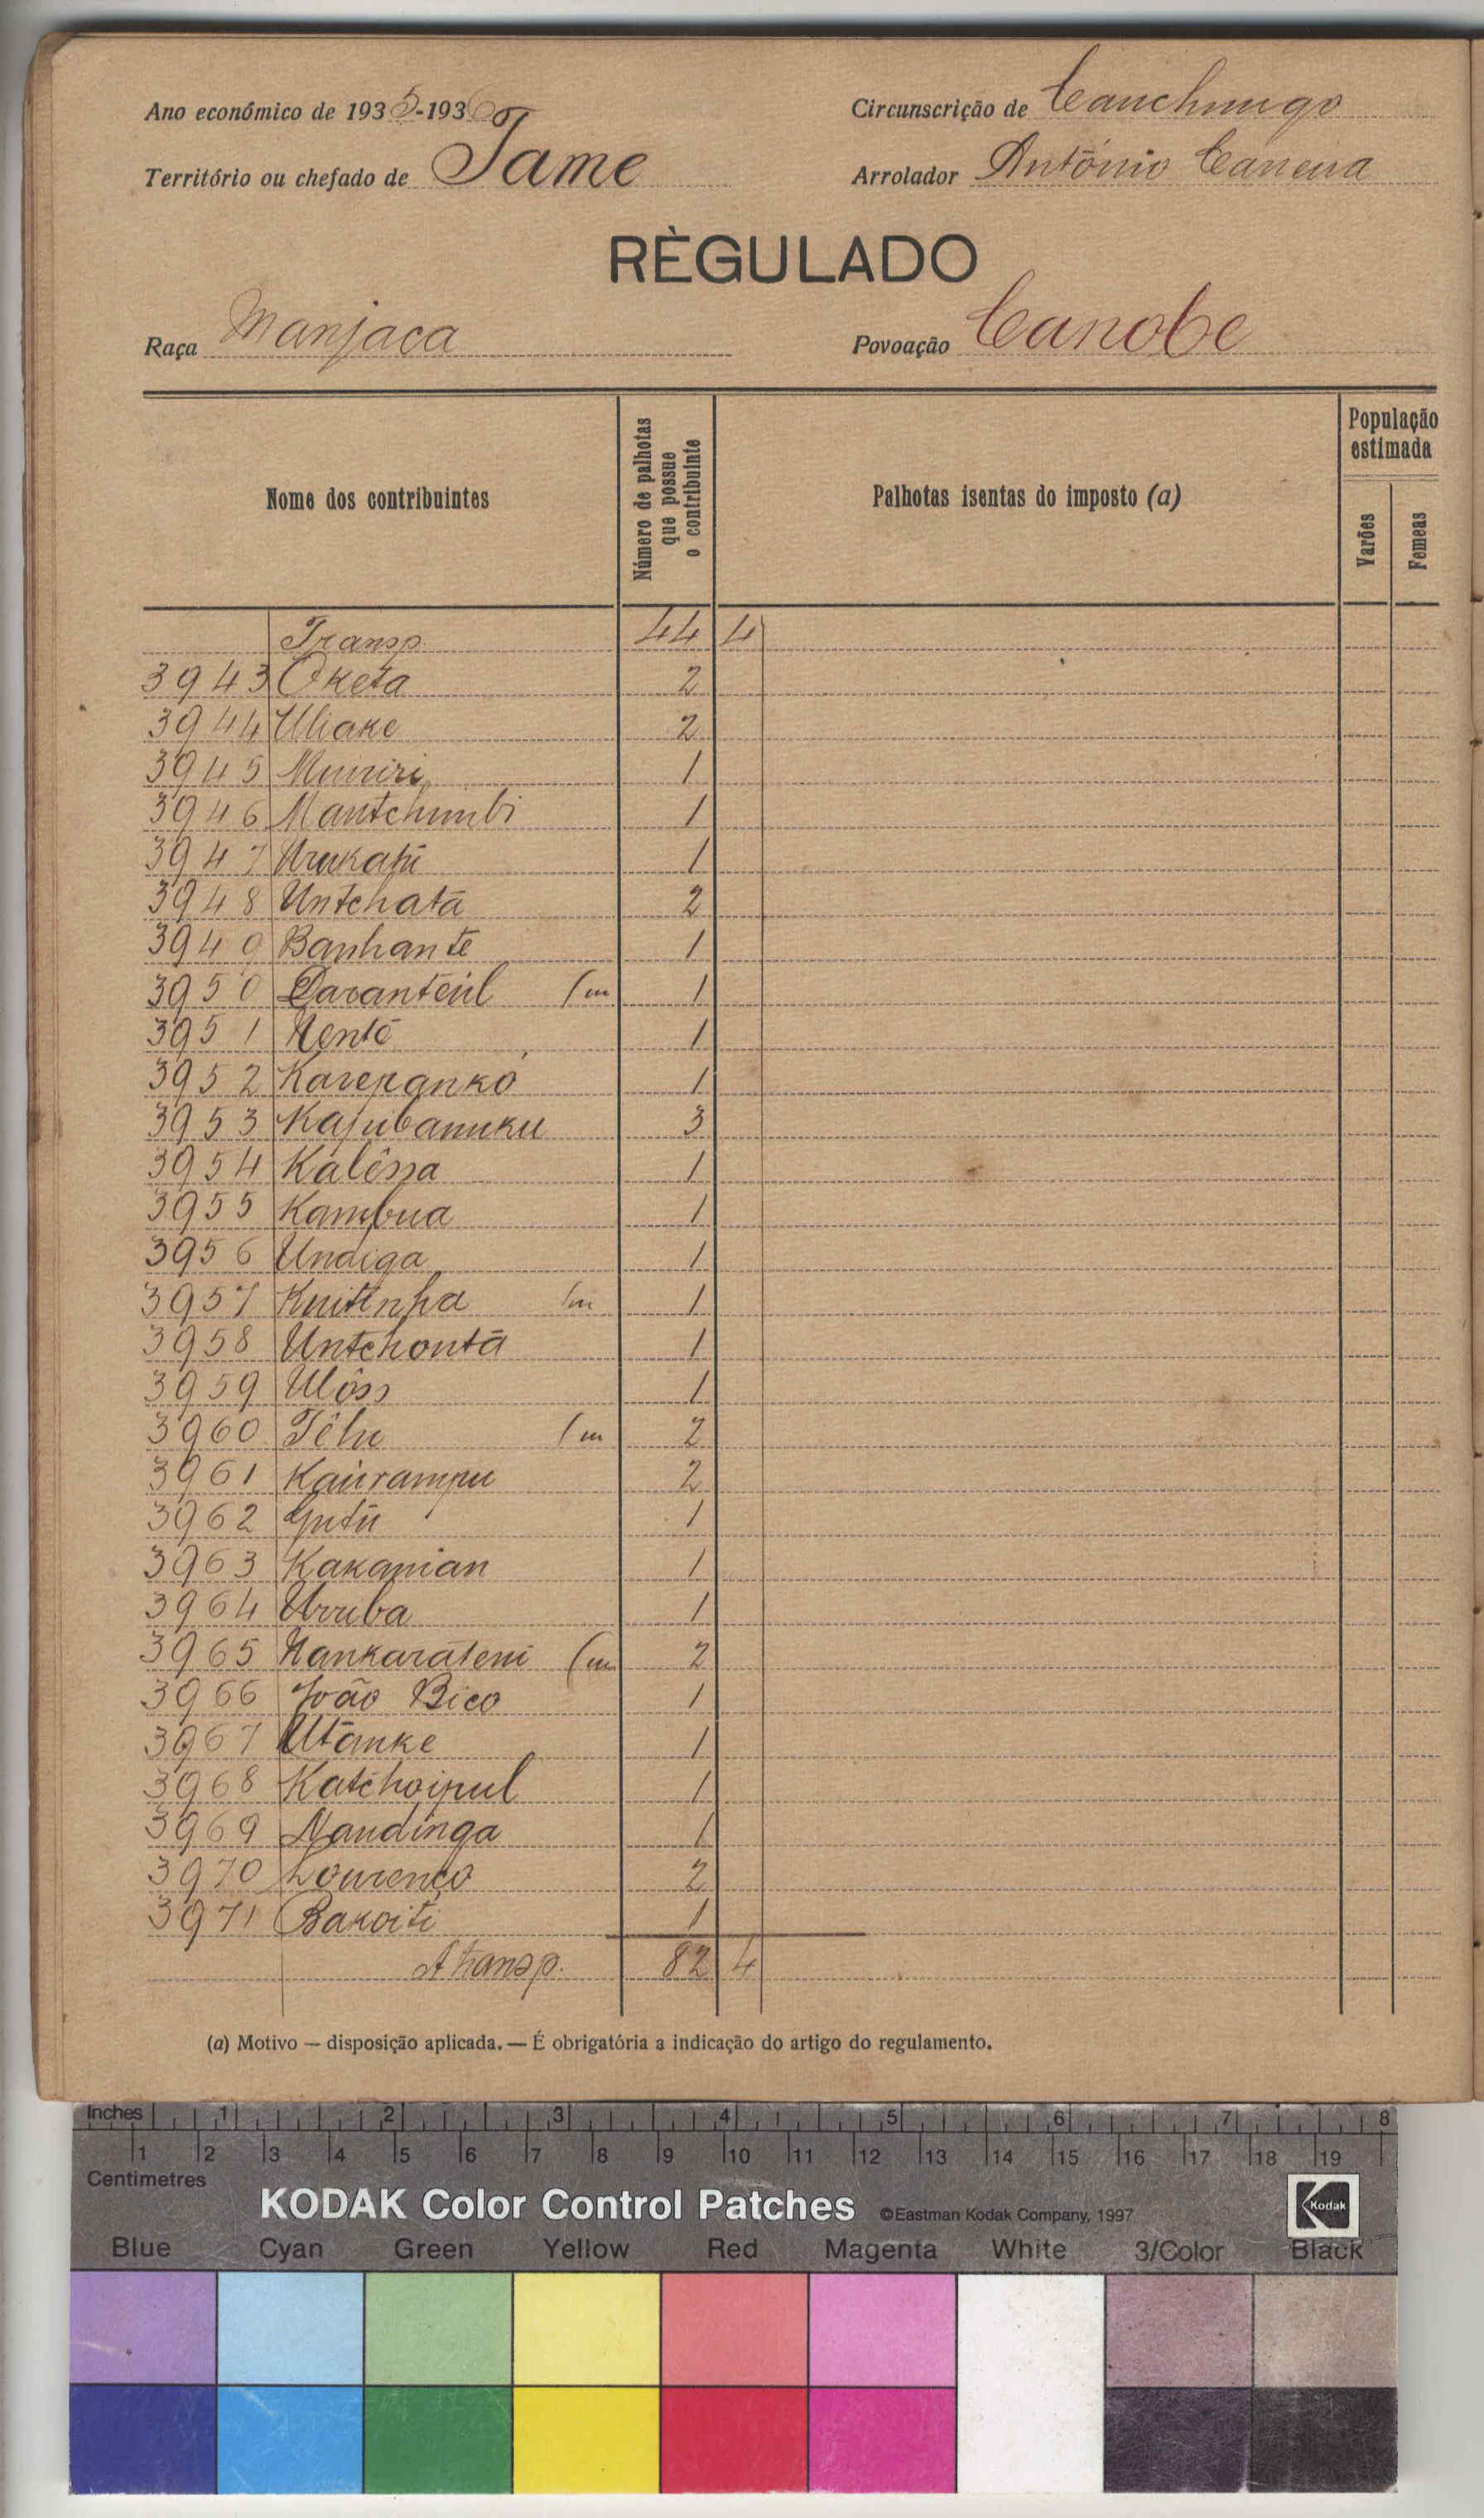 Ano económico de 1935-1936
Circunscrição de Canchungo
Território ou chefado de Tame
Arrolador António Carreira
RÈGULADO
Raça Manjaca
Povoação Canobe
Nome dos contribuintes
Número de palhotas que possue o contribuinte
Palhotas isentas do imposto (a)
População estimada
Varões
Femeas
Transp. 44 4
3943 Oketa 2
3944 Uliake 2
3945 Muniri 1
3946 Mantchumbi 1
3947 1
3948 Untchatá 2
3940 Banhante 1
3950 1
3951 Nentó 1
3952 1
3953 Kajubanuku 3
3954 Kalêssa 1
3955 Kambua 1
3956 Undiga 1
3957 1
3958 Untchontá 1
3959 Ulôss 1
3960 2
3961 Kaurampu 2
3962 1
3963 Kakanian 1
3964 Uruba 1
3965 2
3966 João Bico 1
3967 Utanke 1
3968 Katchoipul 1
3969 Mandinga 1
3970 Lourenço 2
3971 Bakoiti 1
A transp. 82 4
(a) Motivo — disposição aplicada. — É obrigatória a indicação do artigo do regulamento.
Inches 1 2 3 4 5 6 7 8
1 2 3 4 5 6 7 8 9 10 11 12 13 14 15 16 17 18 19
Centimetres
KODAK Color Control Patches ©Eastman Kodak Company, 1997 Kodak
Blue Cyan Green Yellow Red Magenta White 3/Color Black